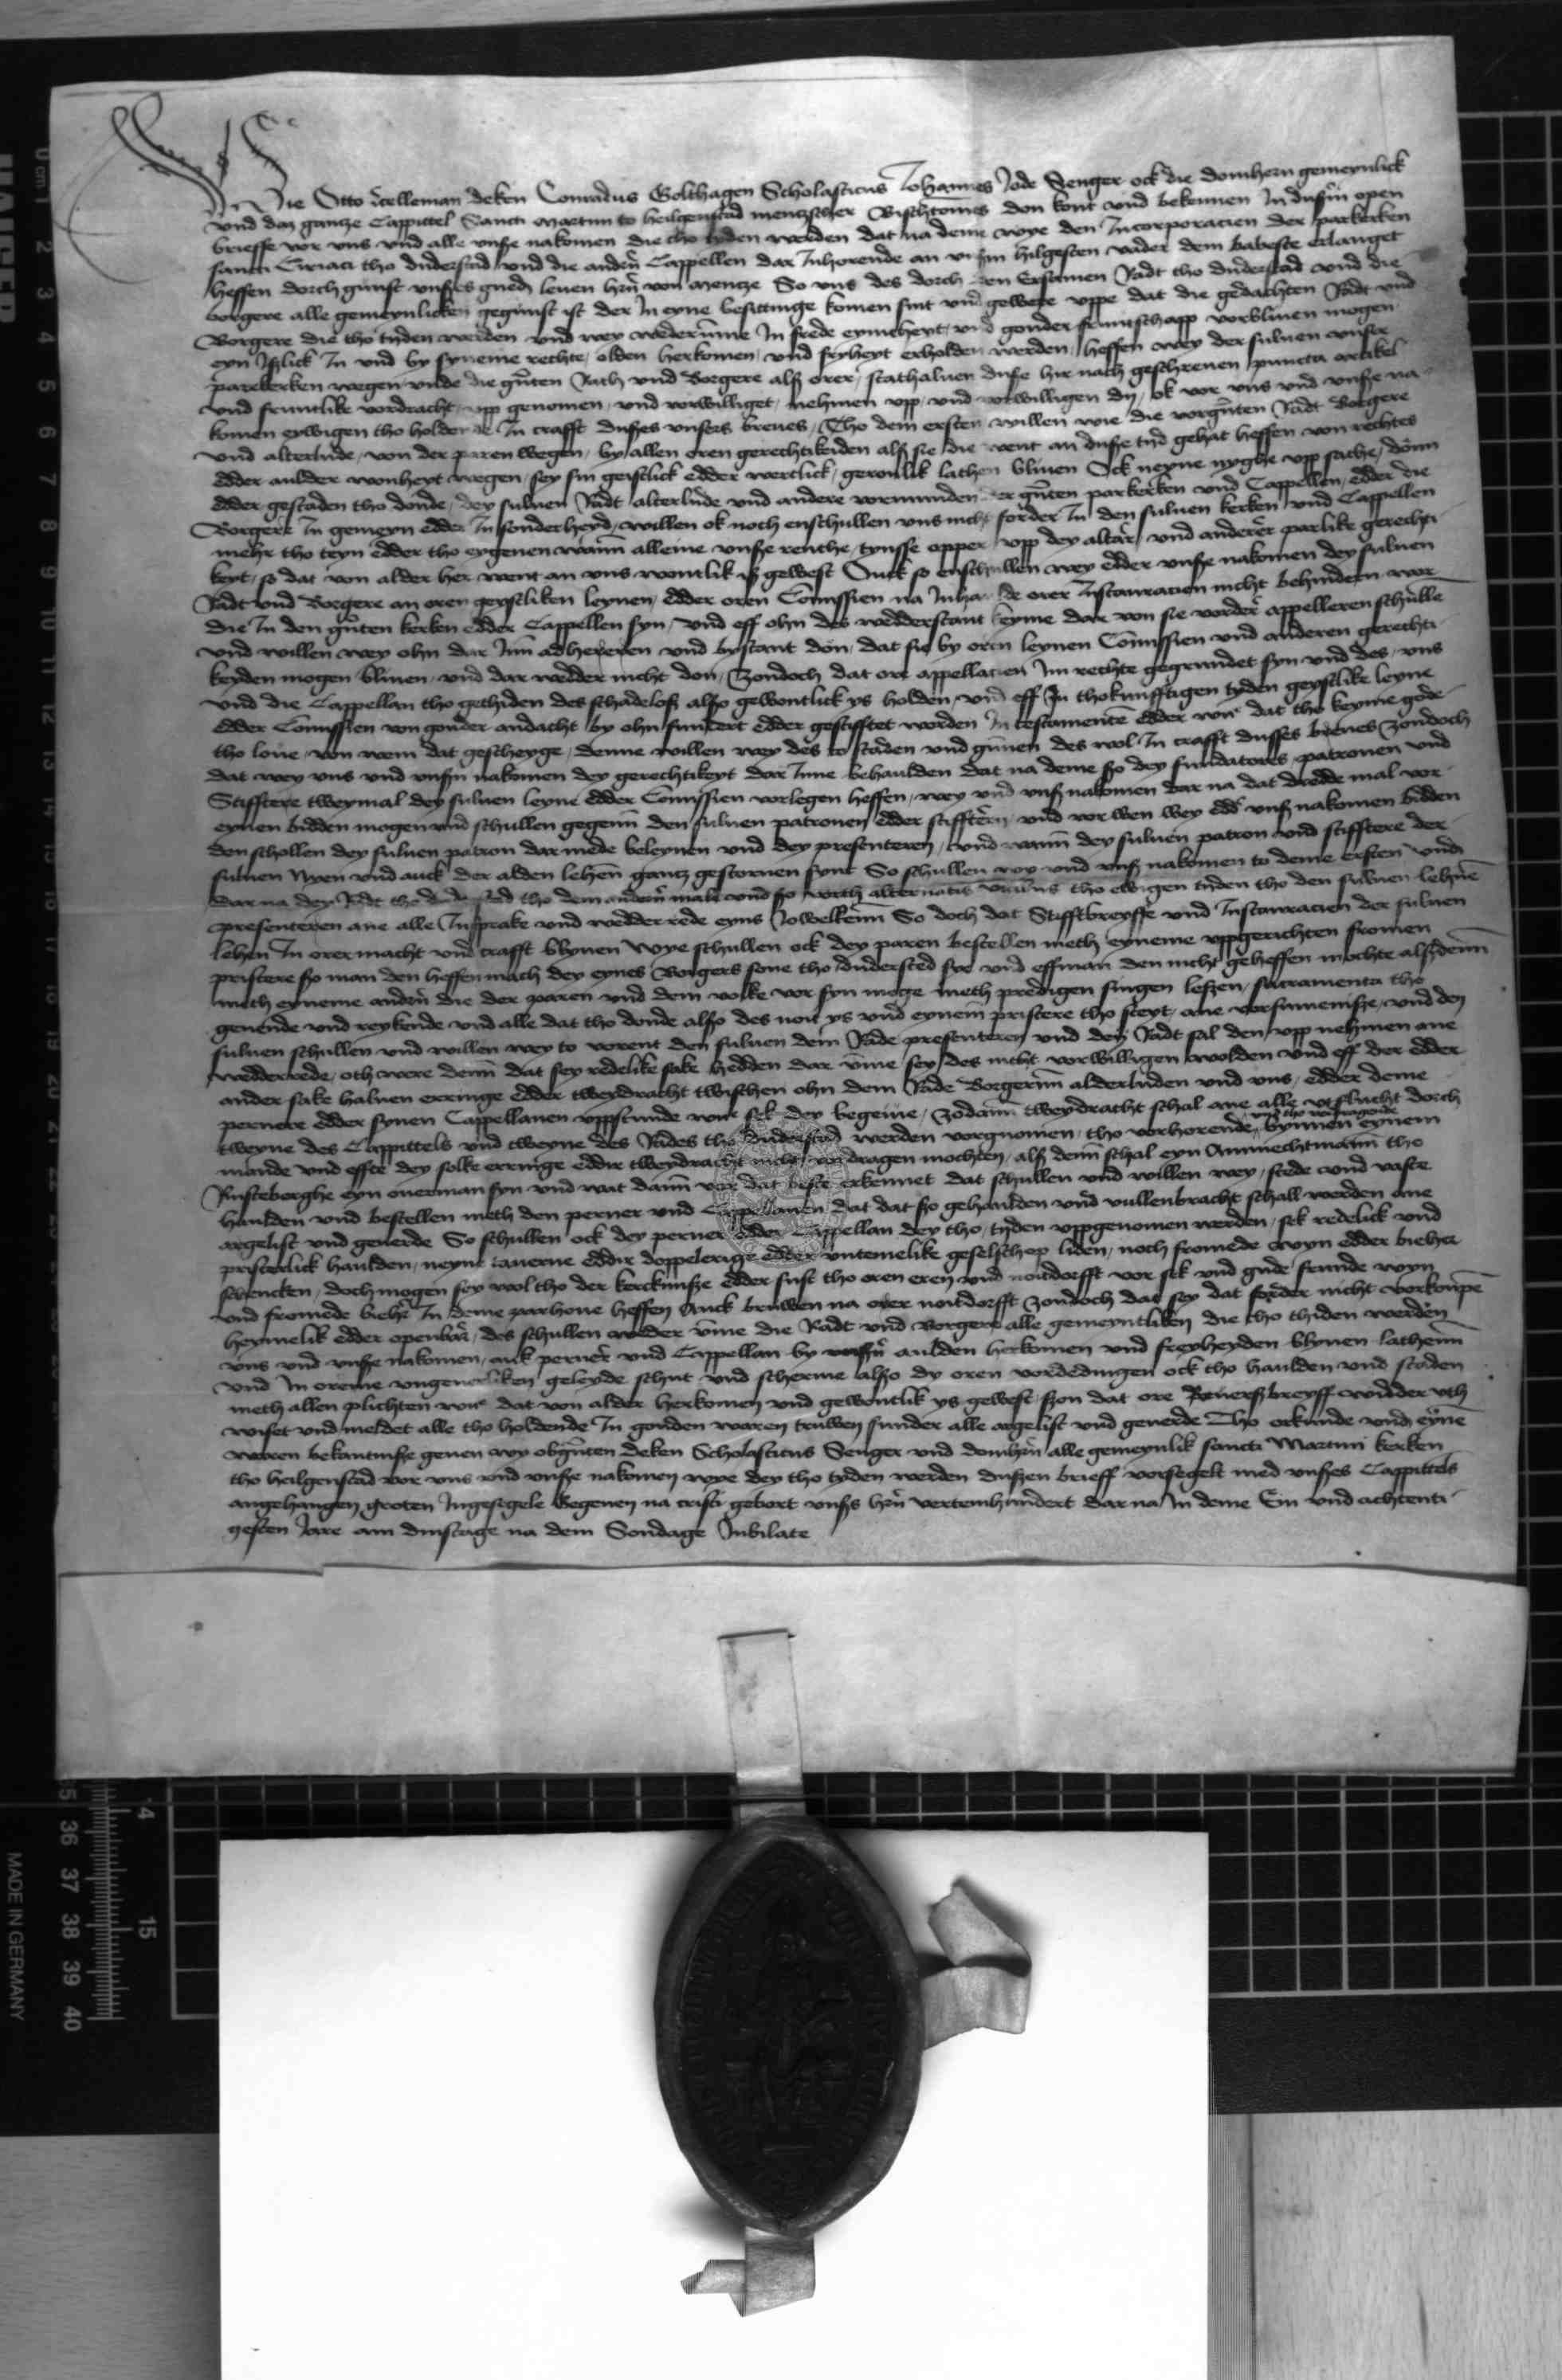 Wie Otto deken Conradus Bolthagen Scholasticus Johannes Jode Senger ock die domhern gemeynlick
und daz gantze Cappittel Sancti Martini to heilgenstad mentzscher Bischtomes don kont und bekennen In dussem open
brieffe vor uns und alle unsze nakomen die tho tyden werden dat na deme wye den Incorporacien der parkerken
sancti Ciriaci tho duderstad und die andern Cappellen dar Inhorende an hilgesten vader dem babeste erlanget
heffen dorch gunst unszes gned leven hern von mentze So uns des dorch den Ersamen Radt tho duderstad und die
borgere alle gemeynlicken gegunst ist der In eyne besittinge komen sint und gewere uppe dat die gedachten Radt und
Borgere die tho tyden werden und wey wederumme In frede eynicheyt und gonder fruntschapp vorbliven mogen
eyn Iszlick In und by syneme rechte olden herkomen und fryheyt erholden werden heffen wey der sulven unser
parkerken wegen die gnten Rath und Borgere alsz orer stathalven dusze hir nach geschreven puncta artikel
und fruntlike vordracht upp genomen und vorwilliget nehmen upp und vorwilligen dy ok vor uns und unsze na
komen ewigen tho holdende In crafft duszes unsers breves Tho dem ersten willen wie die vorgnten Radt Borgere
und alterlude von der paren wegen by allen oren gerechtikeiden alsz sie die went an dusze tyd gehat heffen von rechtes
edder aulder wonheyt wegen sey sin geistlick edder wertlick gerouwlik lathen bliven Ock neyne nyghe upp sathe donn
edder gestaden tho donde dey sulven Radt alterlude und andere vormunden der gnten parkerken und Cappellen edder die
Borgere In gemeyn edder In sonderheyd willen ok noch enschullen uns nicht forder In den sulven kerken und Cappellen
mehr tho teyn edder tho eygenen wann alleine unsze renthe tynsse opper upp dey altar und anderer parlike gerechti
keyt so dat von alder her went an uns wontlik isz gewest Ouck so enschullen wey edder unsze nakomen dey sulven
Radt und Borgere an oren geystliken leynen edder oren Comissien na Inhalde orer Instauracien nicht behindern wor
die In den gnten kerken edder Cappellen syn und eff ohn des wedderstant keyme dar von sie vorder appelleren schulle
und willen wey ohn dar Inn adhereren und bystant don dat sie by oren leynen Comissien und anderen gerechti
keyden mogen bliven und dar wedder nicht don Zondoch dat ore appellacien Im rechte gegrundet syn und des uns
und die Cappellan tho gethiden des schadelosz alszo gewontlick ys holden und eff In thokunfftigen tyden geystlike leyne
edder Comissien von gonder andacht by ohn fundert edder gestifftet worden In testamenten edder wur dat tho keyme gode
tho love von wem dat gescheyge denne willen wey des to staden und gunnen des wol In crafft dusses breves Zondoch
dat wey uns und unszn nakomen dey gerechtikeyt dar Inne behaulden dat na deme szo dey fundatores patronen und
Stifftere tweymal dey sulven leyne edder Comissien vorlegen heffen wey und unsz nakomen dar na dat dredde mal vor
eynen bidden mogen und schullen gegenn den sulven patronen edder stifftern und vor wen wey edder unsz nakomen bidden
den schollen dey sulven patron dar mede beleynen und dey presenteren und wann dey sulven patron und stifftere der
sulven nyen und auck der alden lehen gantz gestorven synt So schullen wy und unsz nakomen to deme ersten und
dar na dey Radt tho duderstad tho dem andern male und szo vorth alternatis vicibus tho ewigen tyden tho den sulven lehne
presenteren ane alle Insprake und wedderrede eyns Jowelkenn So doch dat Stifftbreyffe und Instauracien der sulven
lehen In orer macht und crafft blyven Wye schullen ock dey paren bestellen meth eyneme uppgerichten fromen
pristere szo man den heffen mach dey eynes Borgers sone tho duderstad sye und effman den nicht geheffen mochte alszdenn
meth eyneme andern die der paren und dem volke vor syn moge meth predigen singen leszen sacramenta tho
gevende und reykende und alle dat tho donde alszo des noit ys und eynem pristere tho steyt ane vorsumenisze und den
sulven schullen und willen wey to vorent den sulven dem Rade presenteren und dey Radt sal den upp nehmen ane
wedderrede oth were denn dat sey redelike sake hedden dar umme sey des nicht vorwilligen wolden und eff der edder
ander sake halven erringe edder tweydracht twischen ohn dem Rade Borgerinn alderluden und uns edder deme
pernere edder synen Cappellanen uppstunde wur sek dey begeine zodann tweydracht schal ane alle utflucht dorch
tweyne des Cappittels und tweyne des Rades tho duderstad werden vorgnomen tho vorhorende und tho vordragende bynnen eynem
mande und effte dey solke erringe eddir tweydracht nicht vordragen mochten alsz denn schal eyn Ammechtmann tho
Rusteberghe eyn overman syn und wat dann vor dat beste erkennet dat schullen und willen wey stede und vaste
haulden und bestellen meth den perner und Cappellanen dat dat szo gehaulden und vullenbracht schall werden ane
argelist und geverde So schullen ock dey perner edder Cappellan dey tho tyden uppgenomen werden sek redelick und
pristerlick haulden neyne taverne eddir doppelerige edder untemelike geselschop liden noch fromede wyn edder bieher
schencken doch mogen sey wol tho der kerckmisze edder sust tho oren eren und noitdorfft vor sek und gude frunde wyn
und fromede biehr In deme parhove heffen Auck bruwen na orer noitdorfft zondoch dat sey dat forder nicht vorkoupen
heymelik edder openbar des schullen wedder umme die Radt und Borgere alle gemeyntliken die tho thiden werden
uns und unsze nakomen auk perner und Cappellan by unszn aulden herkomen und freyheyden blyven lathenn
und In oreme ungeverliken geleyde schut und scherme alszo dy oren vordedingen ock tho haulden und staden
meth allen plichten wur dat von alder herkomen und gewontlik ys gewest szon dat ore Reverszbreyff wedder uth
wiset und meldet alle tho holdende In gouden waren truwen sunder alle argelist und geverde Tho orkunde und eyne
waren bekantnisze geven wy obgnten deken Scholasticus Senger und domhern alle gemeynlik sancti Martini kerken
tho heilgenstad vor uns und unsze nakomen wye dey tho tyden werden duszen brieff vorsegelt med unszes Cappittels
angehangen groten Ingesegele Gegeven na cristi gebort unszs hern verteinhundert dar na In deme Ein und achtenti
gesten Jare am dinstage na dem Sondage Jubilate
MADE IN GERMANY